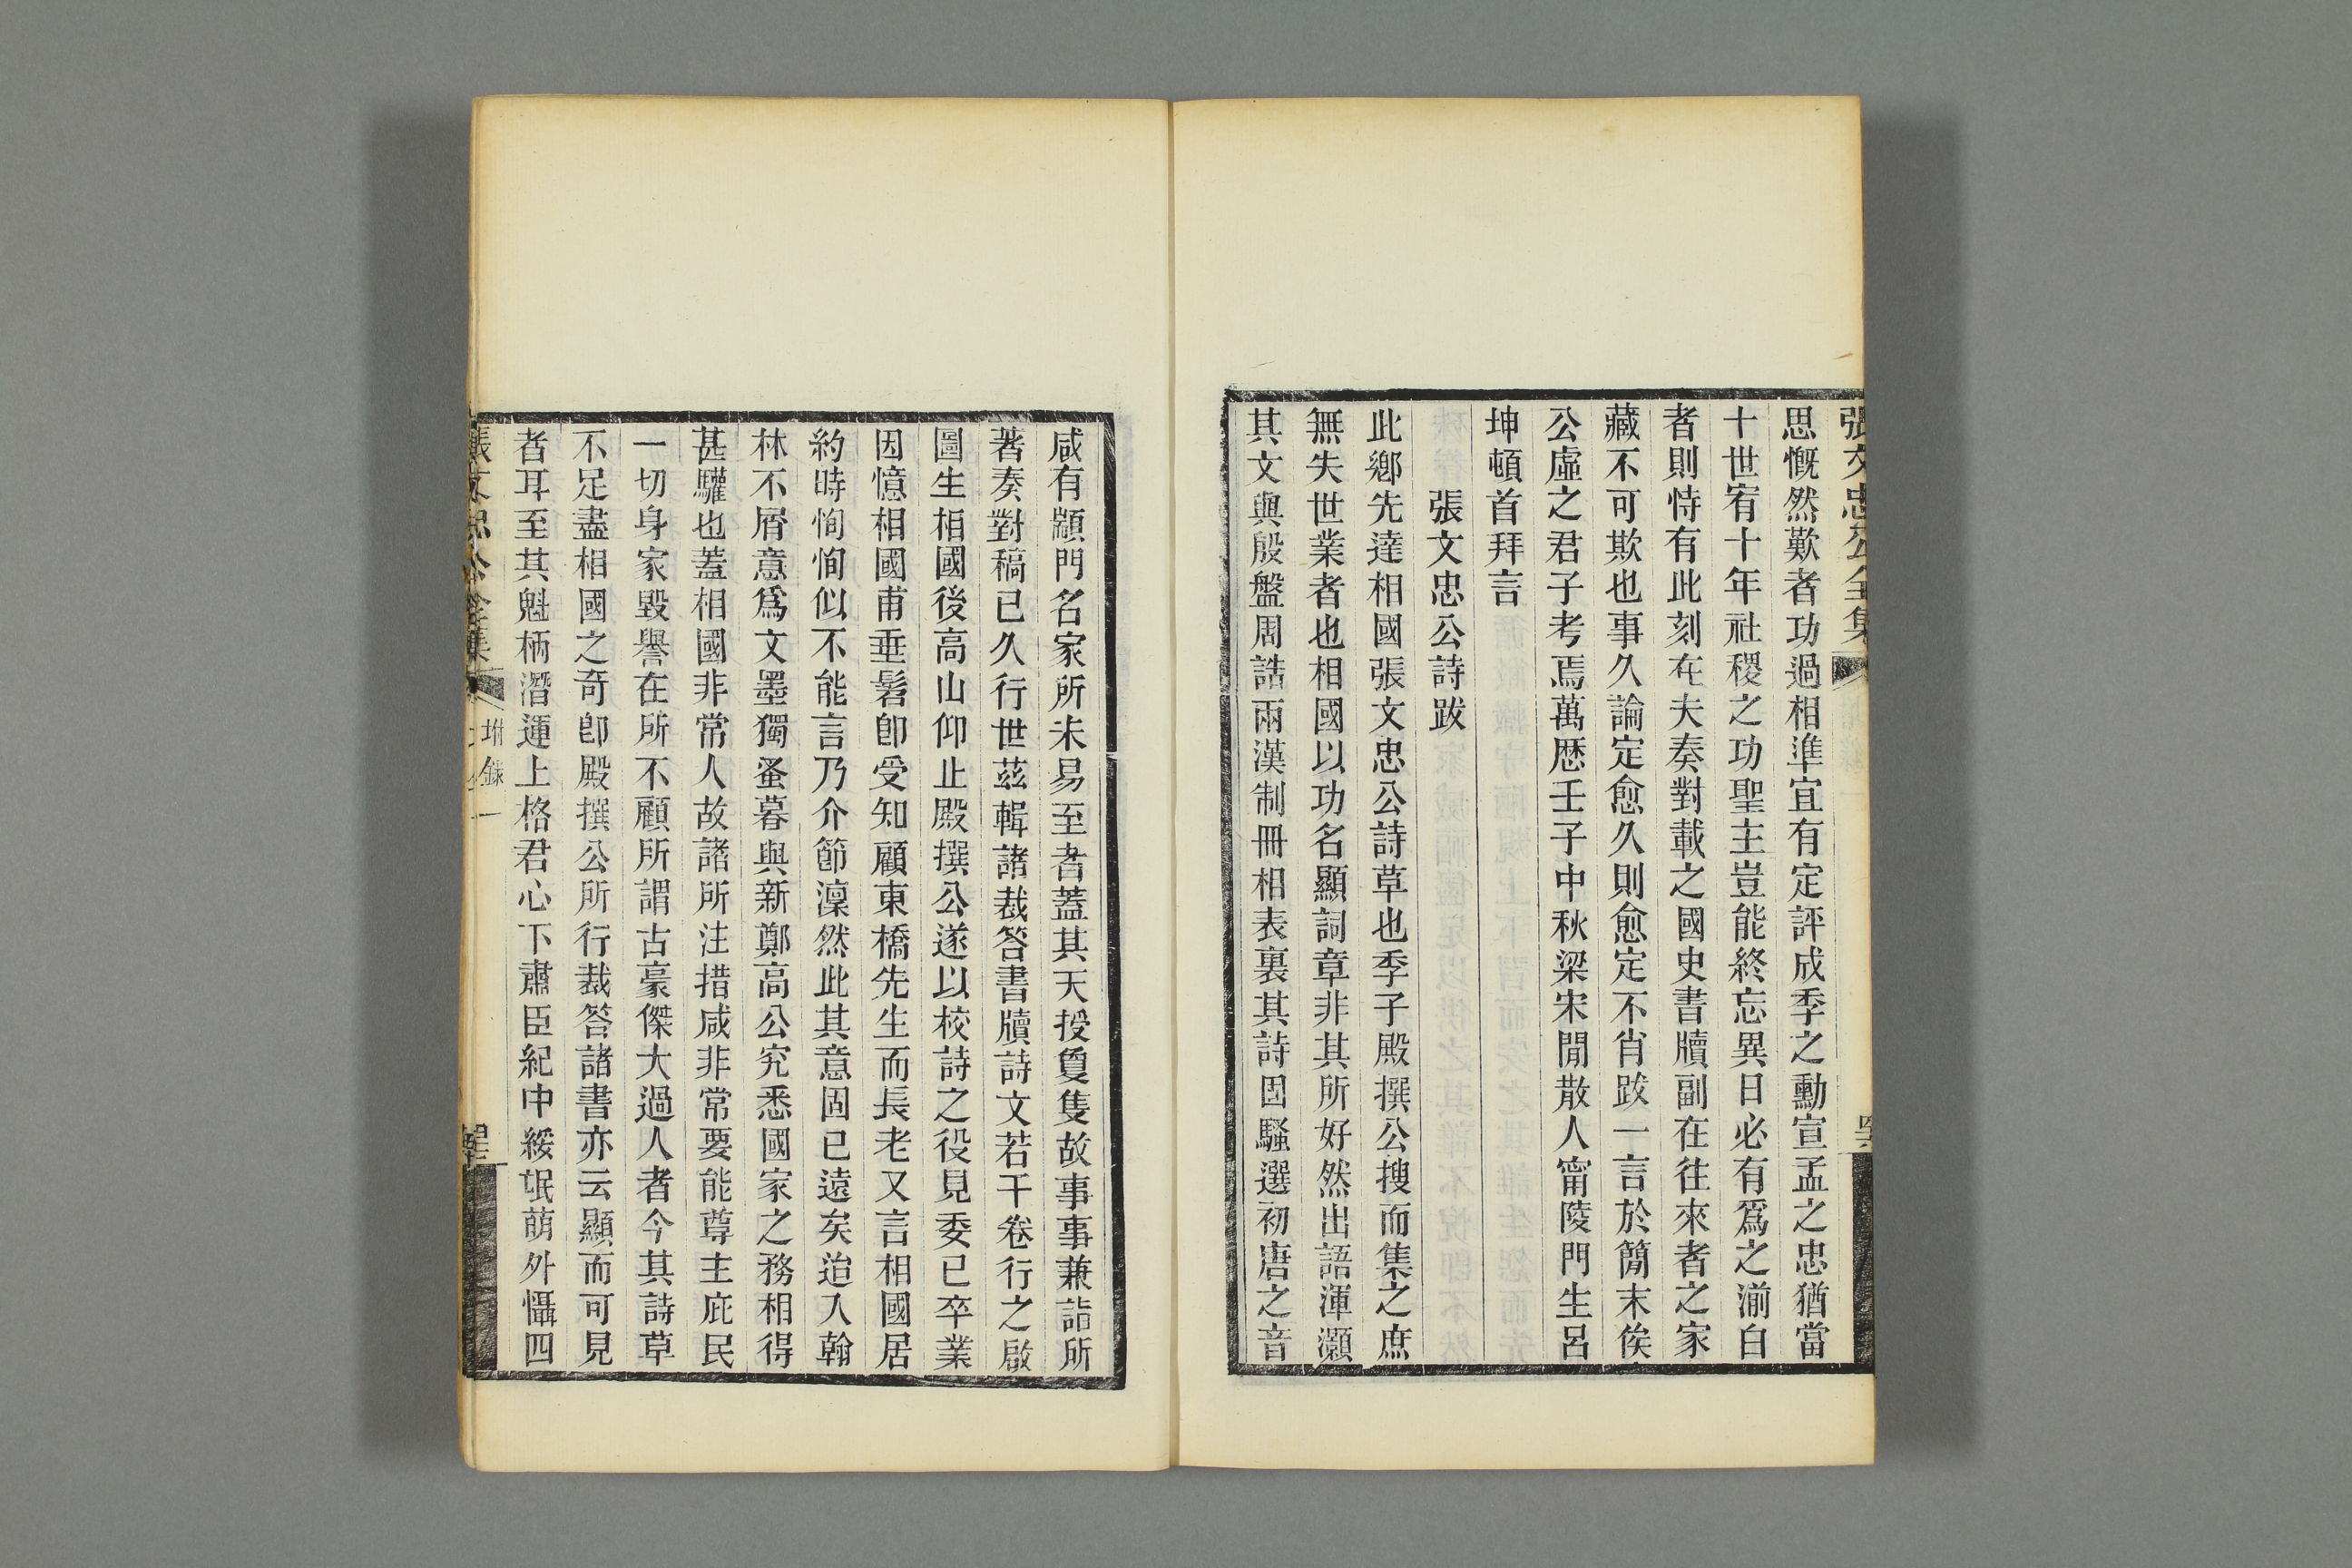 張文忠公全集
思慨然歎者功過相準宜有定評成季之勳宣孟之忠猶當
十世宥十年社稷之功聖主豈能終忘異日必有爲之湔白
者則恃有此刻在夫奏對載之國史書牘副在往來者之家
藏不可欺也事久論定愈久則愈定不肖跋一言於簡末俟
公虛之君子考焉萬歷壬子中秋梁宋閒散人甯陵門生呂
坤頓首拜言
張文忠公詩跋
此鄕先達相國張文忠公詩草也季子殿撰公搜而集之庶
無失世業者也相國以功名顯詞章非其所好然出語渾灝
其文與殷盤周誥兩漢制冊相表裏其詩固騷選初唐之音
咸有顓門名家所未易至者蓋其天授敻隻故事事兼詣所
著奏對稿已久行世茲輯諸裁答書牘詩文若干卷行之啟
圖生相國後高山仰止殿撰公遂以校詩之役見委已卒業
因憶相國甫垂髫卽受知顧東橋先生而長老又言相國居
約時恂恂似不能言乃介節凜然此其意固已遠矣迨入翰
林不屑意爲文墨獨蚤暮與新鄭高公究悉國家之務相得
甚驩也蓋相國非常人故諸所注措咸非常要能尊主庇民
一切身家毀譽在所不顧所謂古豪傑大過人者今其詩草
不足盡相國之奇卽殿撰公所行裁答諸書亦云顯而可見
者耳至其魁柄潛運上格君心下肅臣紀中綏氓萌外懾四
張文忠公全集
附錄一